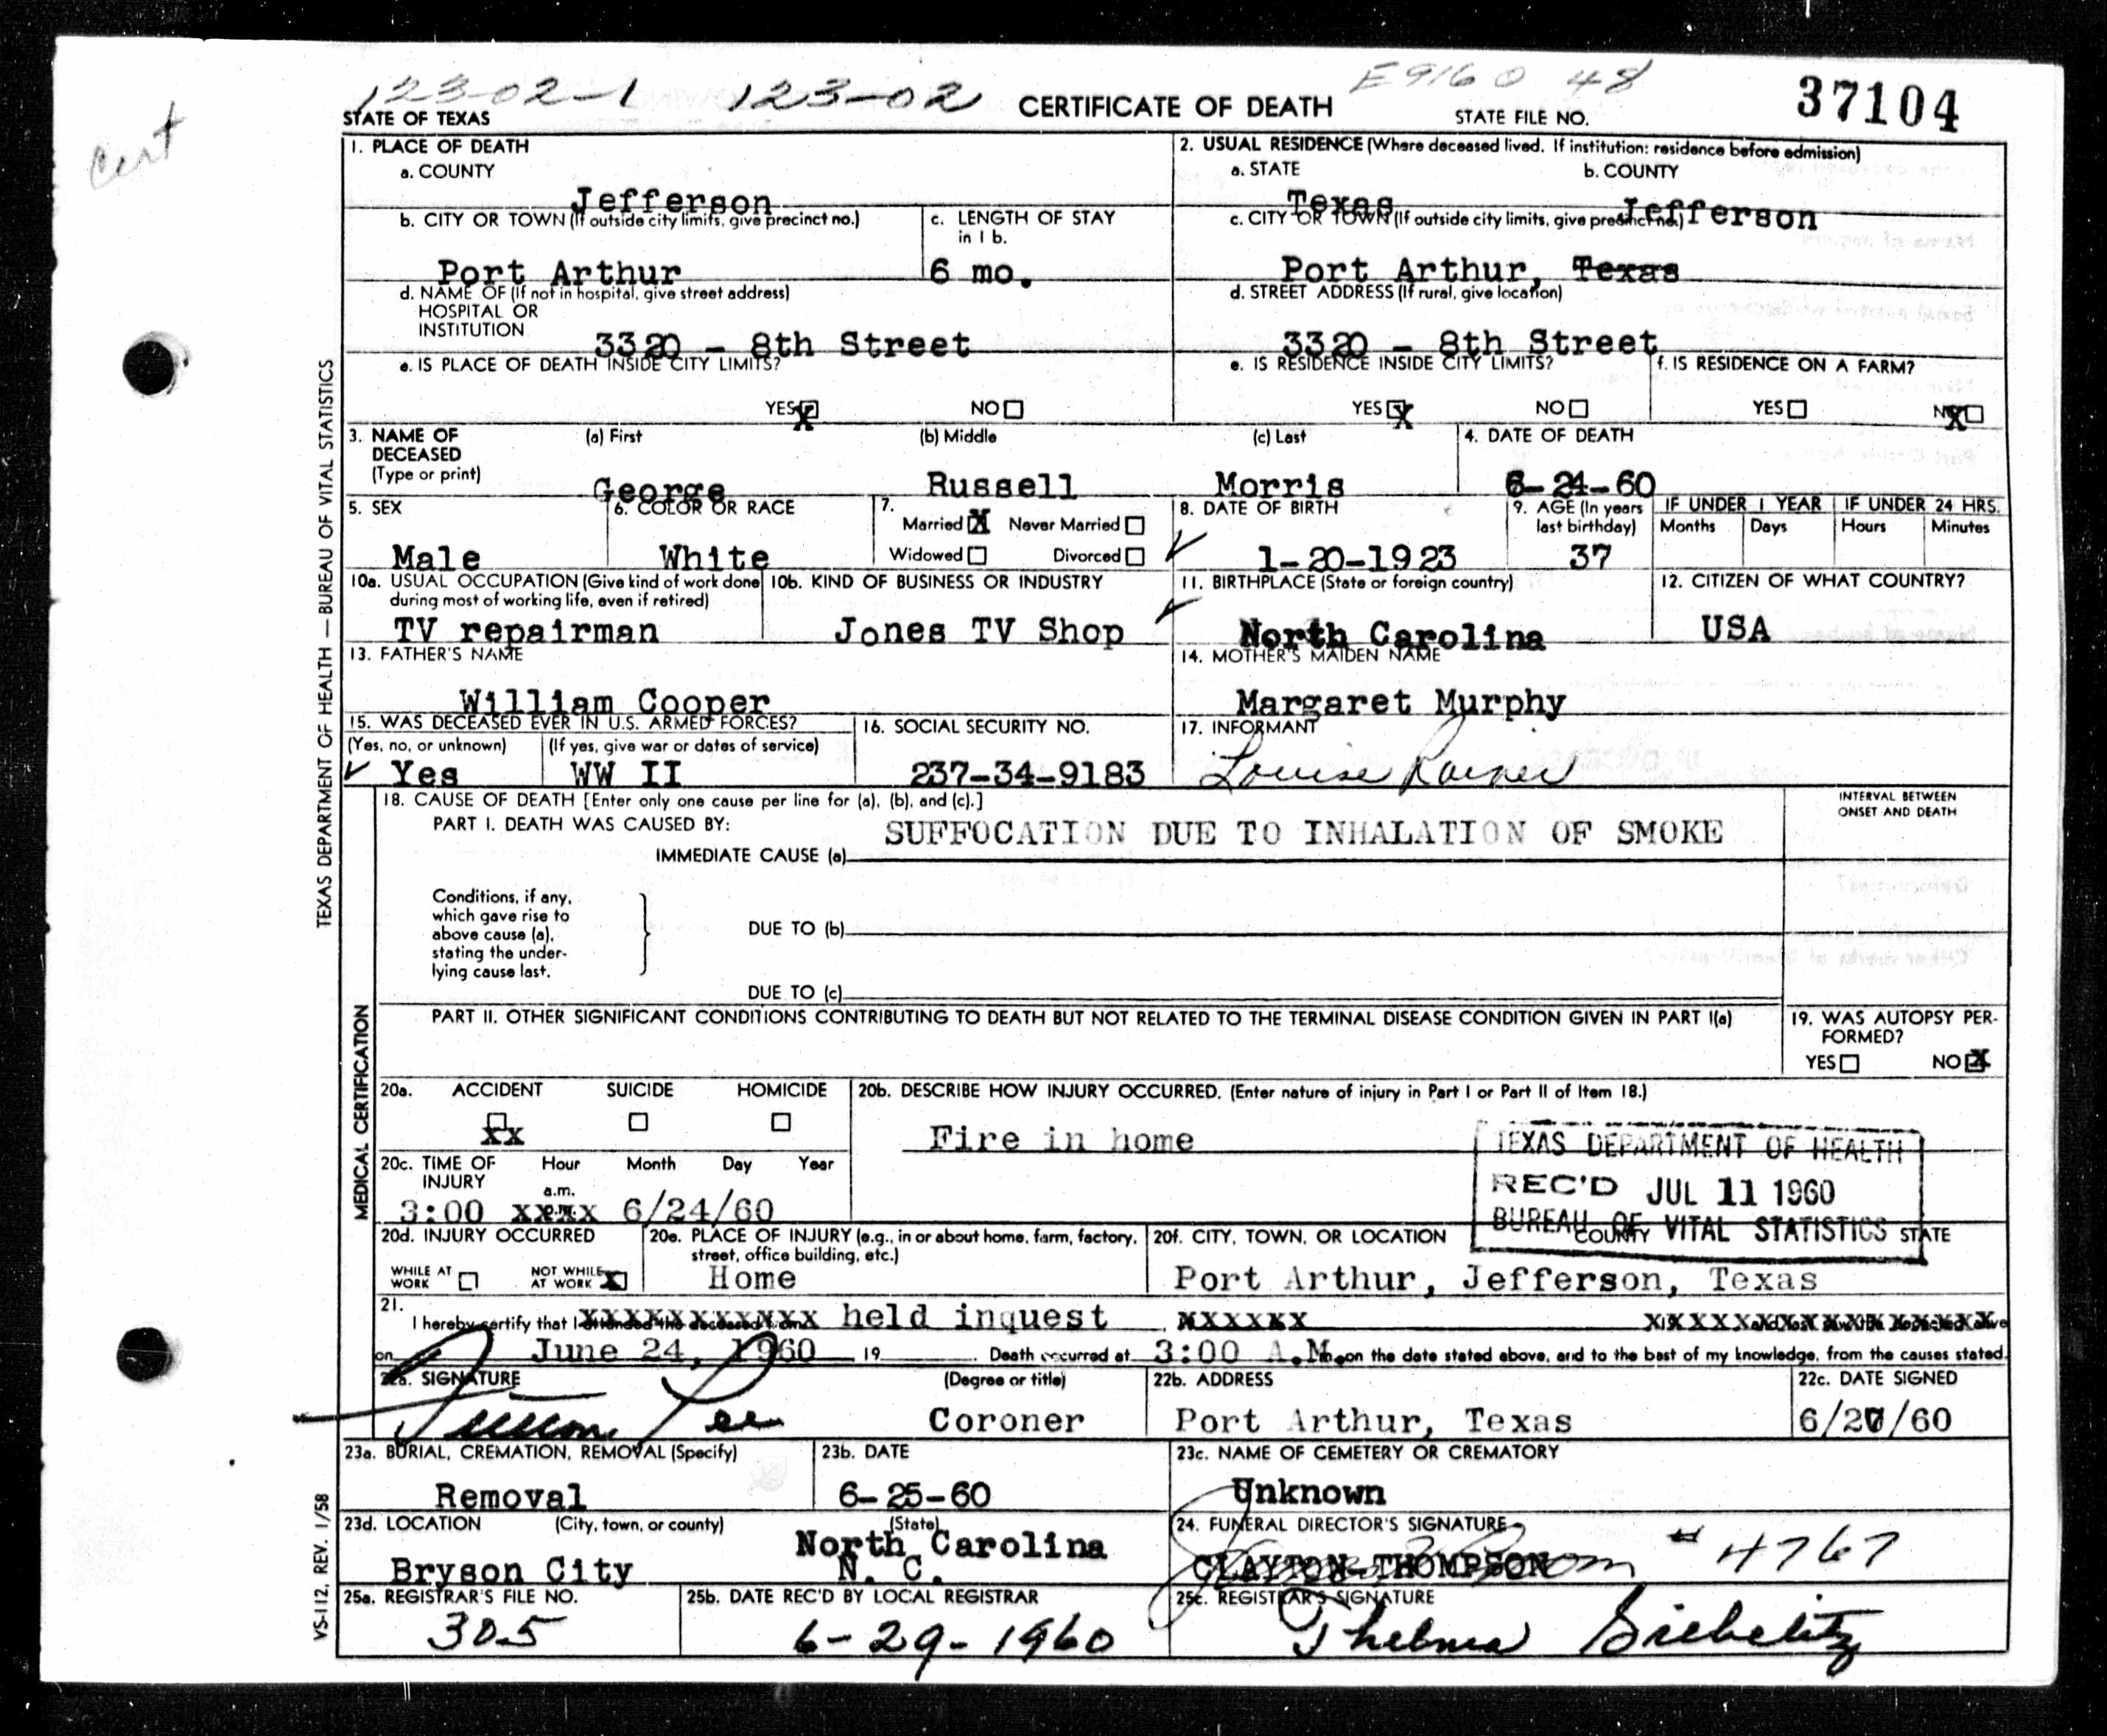 123-02-1 123-02 E9160 48
cert
STATE OF TEXAS CERTIFICATE OF DEATH STATE FILE NO. 37104
TEXAS DEPARTMENT OF HEALTH — BUREAU OF VITAL STATISTICS
1. PLACE OF DEATH
a. COUNTY
Jefferson
2. USUAL RESIDENCE (Where deceased lived. If institution: residence before admission)
a. STATE b. COUNTY
Texas Jefferson
b. CITY OR TOWN (If outside city limits, give precinct no.) c. LENGTH OF STAY in 1 b.
Port Arthur 6 mo.
c. CITY OR TOWN (If outside city limits, give precinct no.)
Port Arthur, Texas
d. NAME OF (If not in hospital, give street address)
HOSPITAL OR
INSTITUTION
3320 - 8th Street
d. STREET ADDRESS (If rural, give location)
3320 - 8th Street
e. IS PLACE OF DEATH INSIDE CITY LIMITS?
YES X NO
e. IS RESIDENCE INSIDE CITY LIMITS?
YES X NO
f. IS RESIDENCE ON A FARM?
YES NO X
3. NAME OF DECEASED (Type or print) (a) First (b) Middle (c) Last
George Russell Morris
4. DATE OF DEATH
6-24-60
5. SEX
Male
6. COLOR OR RACE
White
7.
Married X Never Married
Widowed Divorced
8. DATE OF BIRTH
1-20-1923
9. AGE (In years last birthday)
37
IF UNDER 1 YEAR IF UNDER 24 HRS.
Months Days Hours Minutes
10a. USUAL OCCUPATION (Give kind of work done during most of working life, even if retired)
TV repairman
10b. KIND OF BUSINESS OR INDUSTRY
Jones TV Shop
11. BIRTHPLACE (State or foreign country)
North Carolina
12. CITIZEN OF WHAT COUNTRY?
USA
13. FATHER'S NAME
William Cooper
14. MOTHER'S MAIDEN NAME
Margaret Murphy
15. WAS DECEASED EVER IN U.S. ARMED FORCES?
(Yes, no, or unknown) (If yes, give war or dates of service)
Yes WW II
16. SOCIAL SECURITY NO.
237-34-9183
17. INFORMANT
Louise Rainer
MEDICAL CERTIFICATION
18. CAUSE OF DEATH [Enter only one cause per line for (a), (b), and (c).]
INTERVAL BETWEEN ONSET AND DEATH
PART I. DEATH WAS CAUSED BY:
IMMEDIATE CAUSE (a) SUFFOCATION DUE TO INHALATION OF SMOKE
Conditions, if any,
which gave rise to
above cause (a),
stating the under-
lying cause last.
DUE TO (b)
DUE TO (c)
PART II. OTHER SIGNIFICANT CONDITIONS CONTRIBUTING TO DEATH BUT NOT RELATED TO THE TERMINAL DISEASE CONDITION GIVEN IN PART I(a)
19. WAS AUTOPSY PER-
FORMED?
YES NO X
20a. ACCIDENT SUICIDE HOMICIDE
XX
20b. DESCRIBE HOW INJURY OCCURRED. (Enter nature of injury in Part I or Part II of Item 18.)
Fire in home
TEXAS DEPARTMENT OF HEALTH
REC'D JUL 11 1960
BUREAU OF VITAL STATISTICS
20c. TIME OF INJURY Hour Month Day Year
a.m.
3:00 xxxx 6/24/60
20d. INJURY OCCURRED
WHILE AT WORK NOT WHILE AT WORK X
20e. PLACE OF INJURY (e.g., in or about home, farm, factory, street, office building, etc.)
Home
20f. CITY, TOWN, OR LOCATION COUNTY STATE
Port Arthur, Jefferson, Texas
21.
I hereby certify that I held inquest
on June 24, 1960 19 Death occurred at 3:00 A.M. on the date stated above, and to the best of my knowledge, from the causes stated.
22a. SIGNATURE (Degree or title)
Lee Coroner
22b. ADDRESS
Port Arthur, Texas
22c. DATE SIGNED
6/27/60
23a. BURIAL, CREMATION, REMOVAL (Specify)
Removal
23b. DATE
6-25-60
23c. NAME OF CEMETERY OR CREMATORY
Unknown
23d. LOCATION (City, town, or county) (State)
North Carolina
Bryson City N. C.
24. FUNERAL DIRECTOR'S SIGNATURE
CLAYTON THOMPSON # 4767
25a. REGISTRAR'S FILE NO.
305
25b. DATE REC'D BY LOCAL REGISTRAR
6-29-1960
25c. REGISTRAR'S SIGNATURE
Thelma Siebelitz
VS-112, REV. 1/58